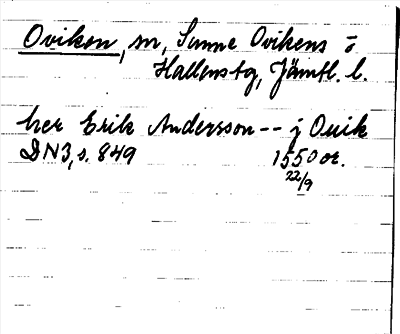 Oviken, sn, Sunne Ovikens o
Hallens tg, Jämtl. l.
her Erik Andersson -- j Ouik
DN3, s. 849 1550 or.
22/9